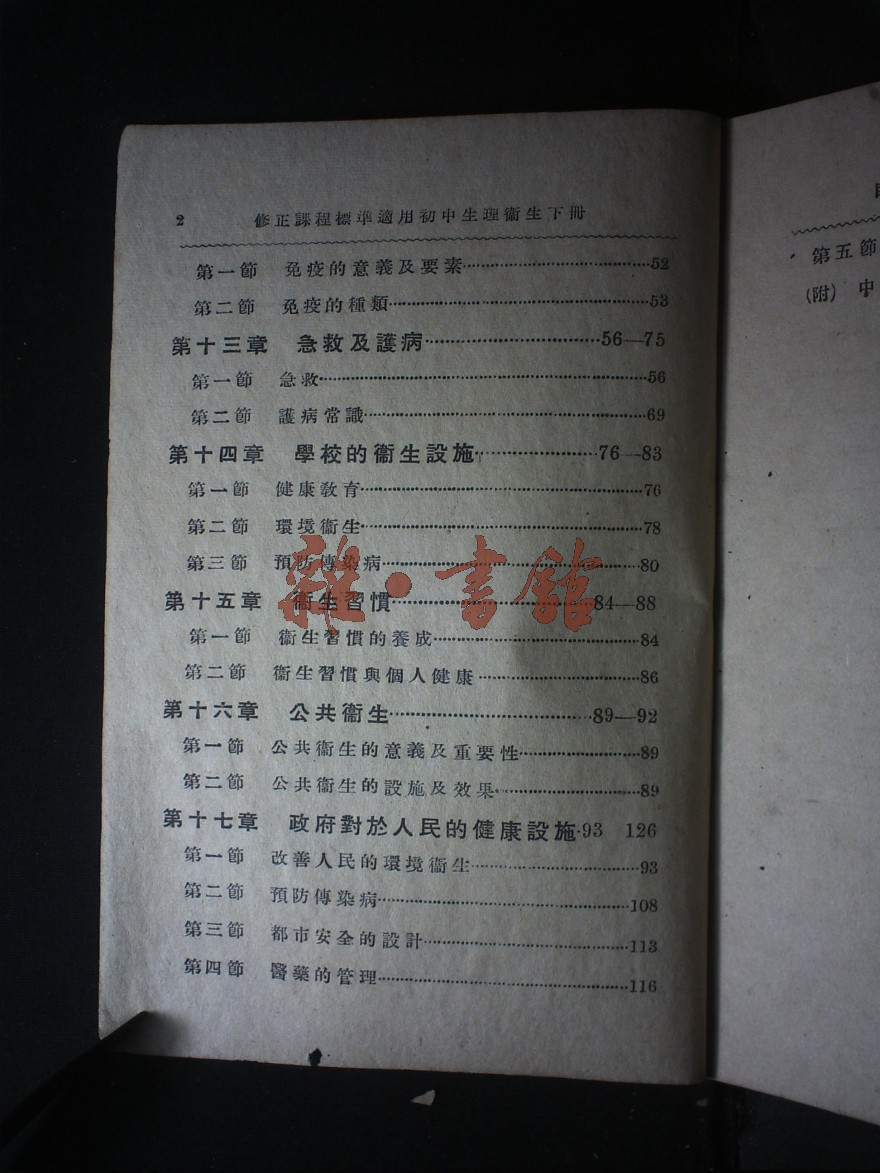 2 修正課程標準適用初中生理衞生下冊
第一節 免疫的意義及要素……52
第二節 免疫的種類……53
第十三章 急救及護病……56—75
第一節 急救……56
第二節 護病常識……69
第十四章 學校的衞生設施……76—83
第一節 健康教育……76
第二節 環境衞生……78
第三節 預防傳染病……80
第十五章 衞生習慣……84—88
第一節 衞生習慣的養成……84
第二節 衞生習慣與個人健康……86
第十六章 公共衞生……89—92
第一節 公共衞生的意義及重要性……89
第二節 公共衞生的設施及效果……89
第十七章 政府對於人民的健康設施·93 126
第一節 改善人民的環境衞生……93
第二節 預防傳染病……108
第三節 都市安全的設計……113
第四節 醫藥的管理……116
雜·書館
第五節
(附) 中